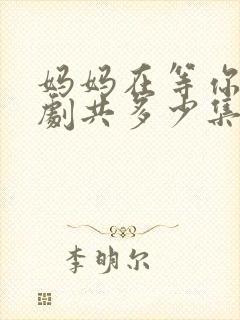 妈妈在等你
劇共多少集
李明尔